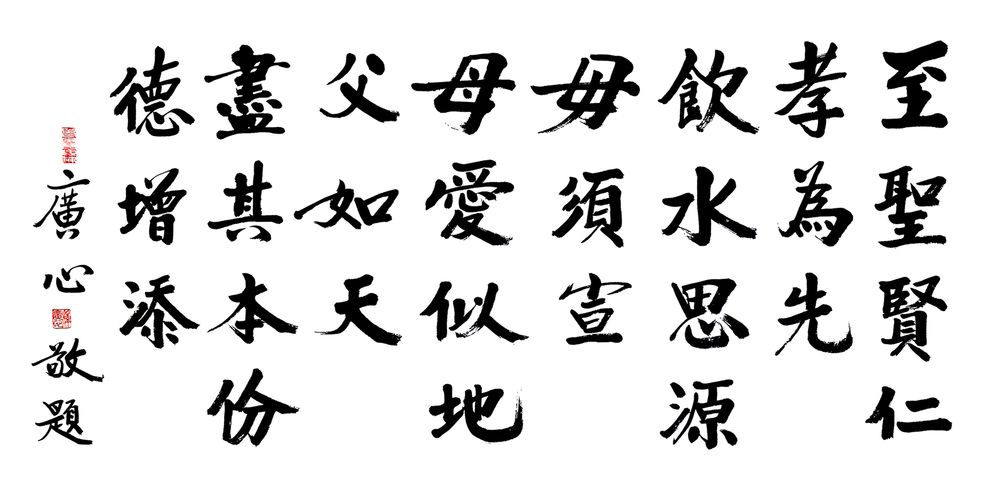 至聖賢仁
孝為先
飲水思源
毋須宣
母愛似地
父如天
盡其本份
德增添
廣心敬題